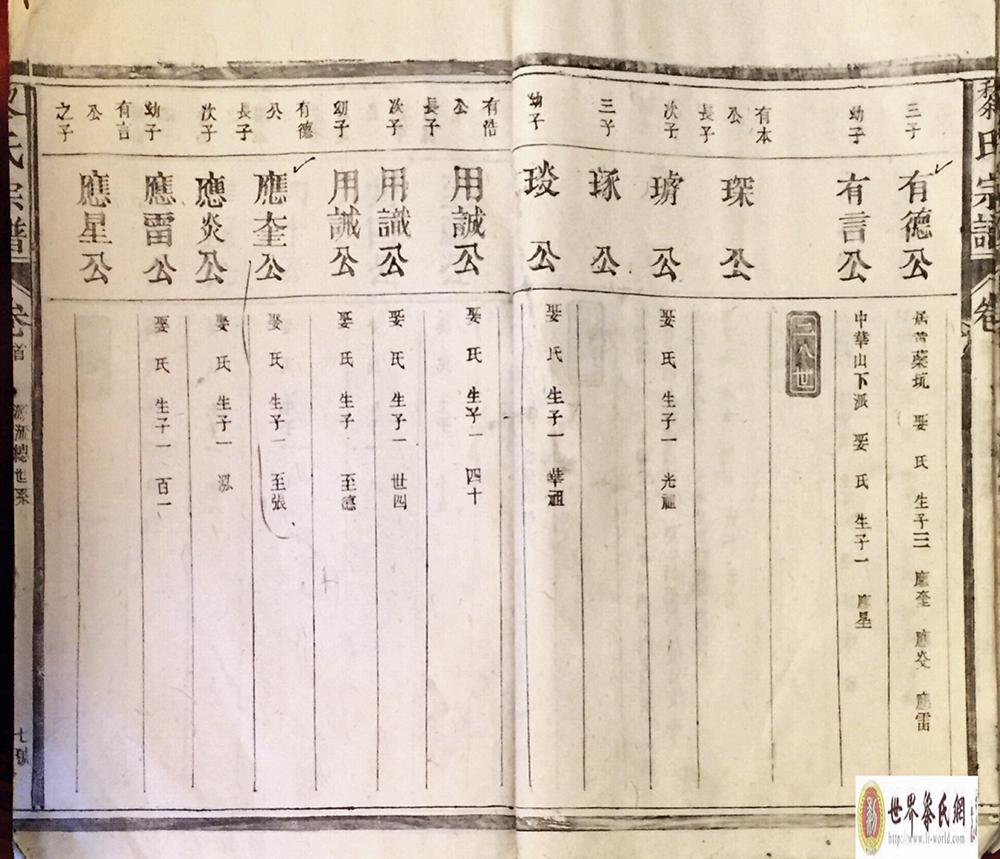 黎氏宗譜 卷
三子 有德公 居 藥坑 娶 氏 生子三 應奎 應炎 應雷
幼子 有言公 中華山下派 娶 氏 生子一 應星
二八世
有本公長子 琛公
次子 琈公 娶 氏 生子一 光祖
三子 琢公
幼子 琰公 娶 氏 生子一 華祖
有浩公長子 用誠公 娶 氏 生子一 四十
次子 用識公 娶 氏 生子一 世四
幼子 用誡公 娶 氏 生子 至德
有德公長子 應奎公 娶 氏 生子一 至張
次子 應炎公 娶 氏 生子一
幼子 應雷公 娶 氏 生子一 百一
有言公之子 應星公
氏宗譜 卷首 總世系
世界黎氏網
http://www.li-world.com